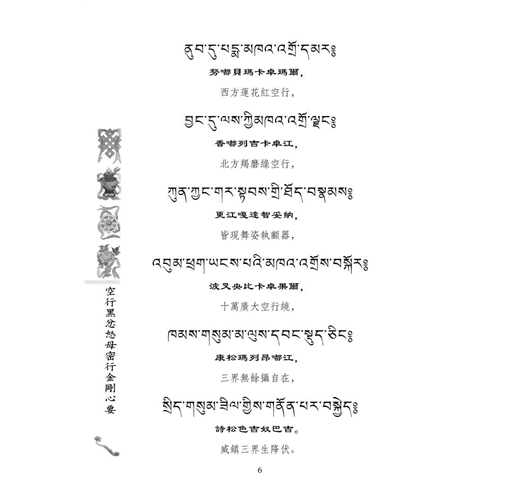 ནུབ་དུ་པདྨ་མཁའ་འགྲོ་དམར༔
努嘟貝瑪卡卓瑪爾，
西方蓮花紅空行，
བྱང་དུ་ལས་ཀྱི་མཁའ་འགྲོ་ལྗང༔
香嘟列吉卡卓江，
北方羯磨綠空行，
ཀུན་ཀྱང་གར་སྟབས་གྲི་ཐོད་བསྣམས༔
更江嘎達智妥納，
皆現舞姿執顱器，
འབུམ་ཕྲག་ཡངས་པའི་མཁའ་འགྲོས་བསྐོར༔
波叉央比卡卓果爾，
十萬廣大空行繞，
ཁམས་གསུམ་མ་ལུས་དབང་སྡུད་ཅིང༔
康松瑪列昂嘟江，
三界無餘攝自在，
སྲིད་གསུམ་ཟིལ་གྱིས་གནོན་པར་བསྐྱེད༔
詩松色吉奴巴吉。
威鎮三界生降伏。
空行黑忿怒母密行金剛心要
6